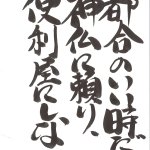 都合のいい時だ
神仏に頼り、
便利屋にしな